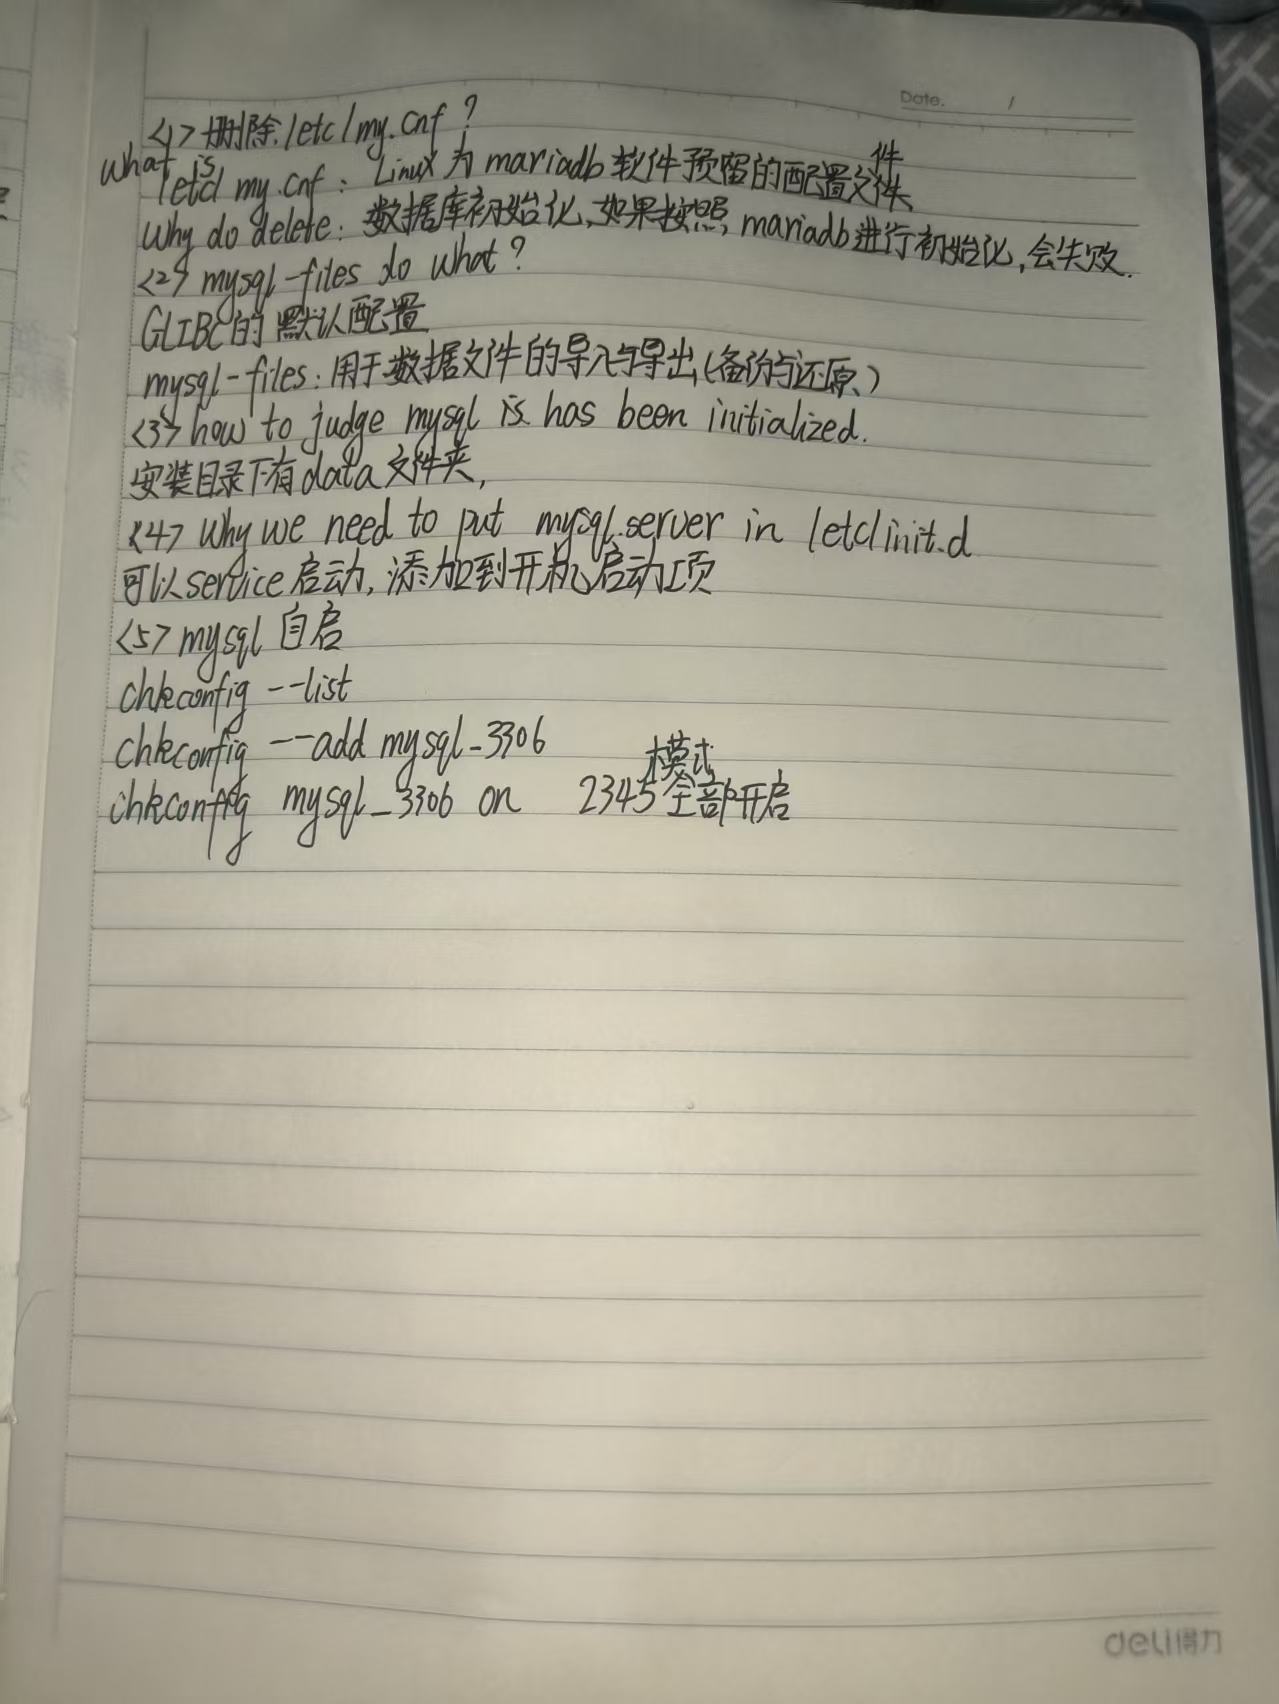 Date. /
<1> 删除 /etc/my.cnf ?
what is /etc/ my.cnf : Linux 为 mariadb 软件预留的配置文件
件
Why do delete: 数据库初始化,如果按照, mariadb进行初始化,会失败.
<2> mysql-files do what ?
GLIBC的默认配置
mysql-files: 用于数据文件的导入与导出(备份与还原)
<3> how to judge mysql is has been initialized.
安装目录下有data文件夹,
<4> Why we need to put mysql.server in /etc/init.d
可以service启动,添加到开机启动项
<5> mysql 自启
chkconfig --list
chkconfig --add mysql_3306
模式
chkconfig mysql_3306 on 2345全部开启
deli得力